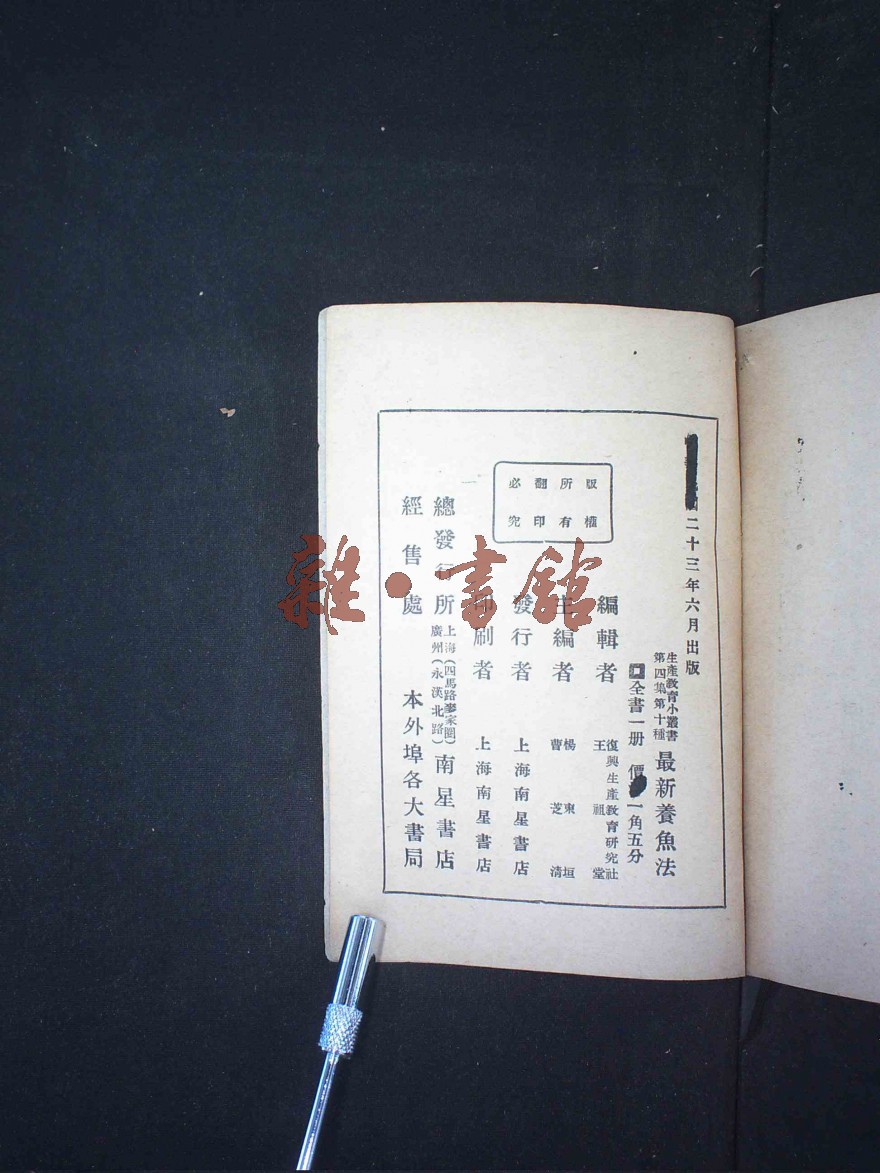 二十三年六月出版
生產教育小叢書
第四集第十種
最新養魚法
全書一册 價 一角五分
編輯者 復興生產教育研究社
王祖堂
主編者 楊東垣
曹芝清
發行者 上海南星書店
印刷者 上海南星書店
版權
所有
翻印
必究
總發行所 上海(四馬路麥家圈)
廣州(永漢北路)
南星書店
經售處 本外埠各大書局
雜·書館